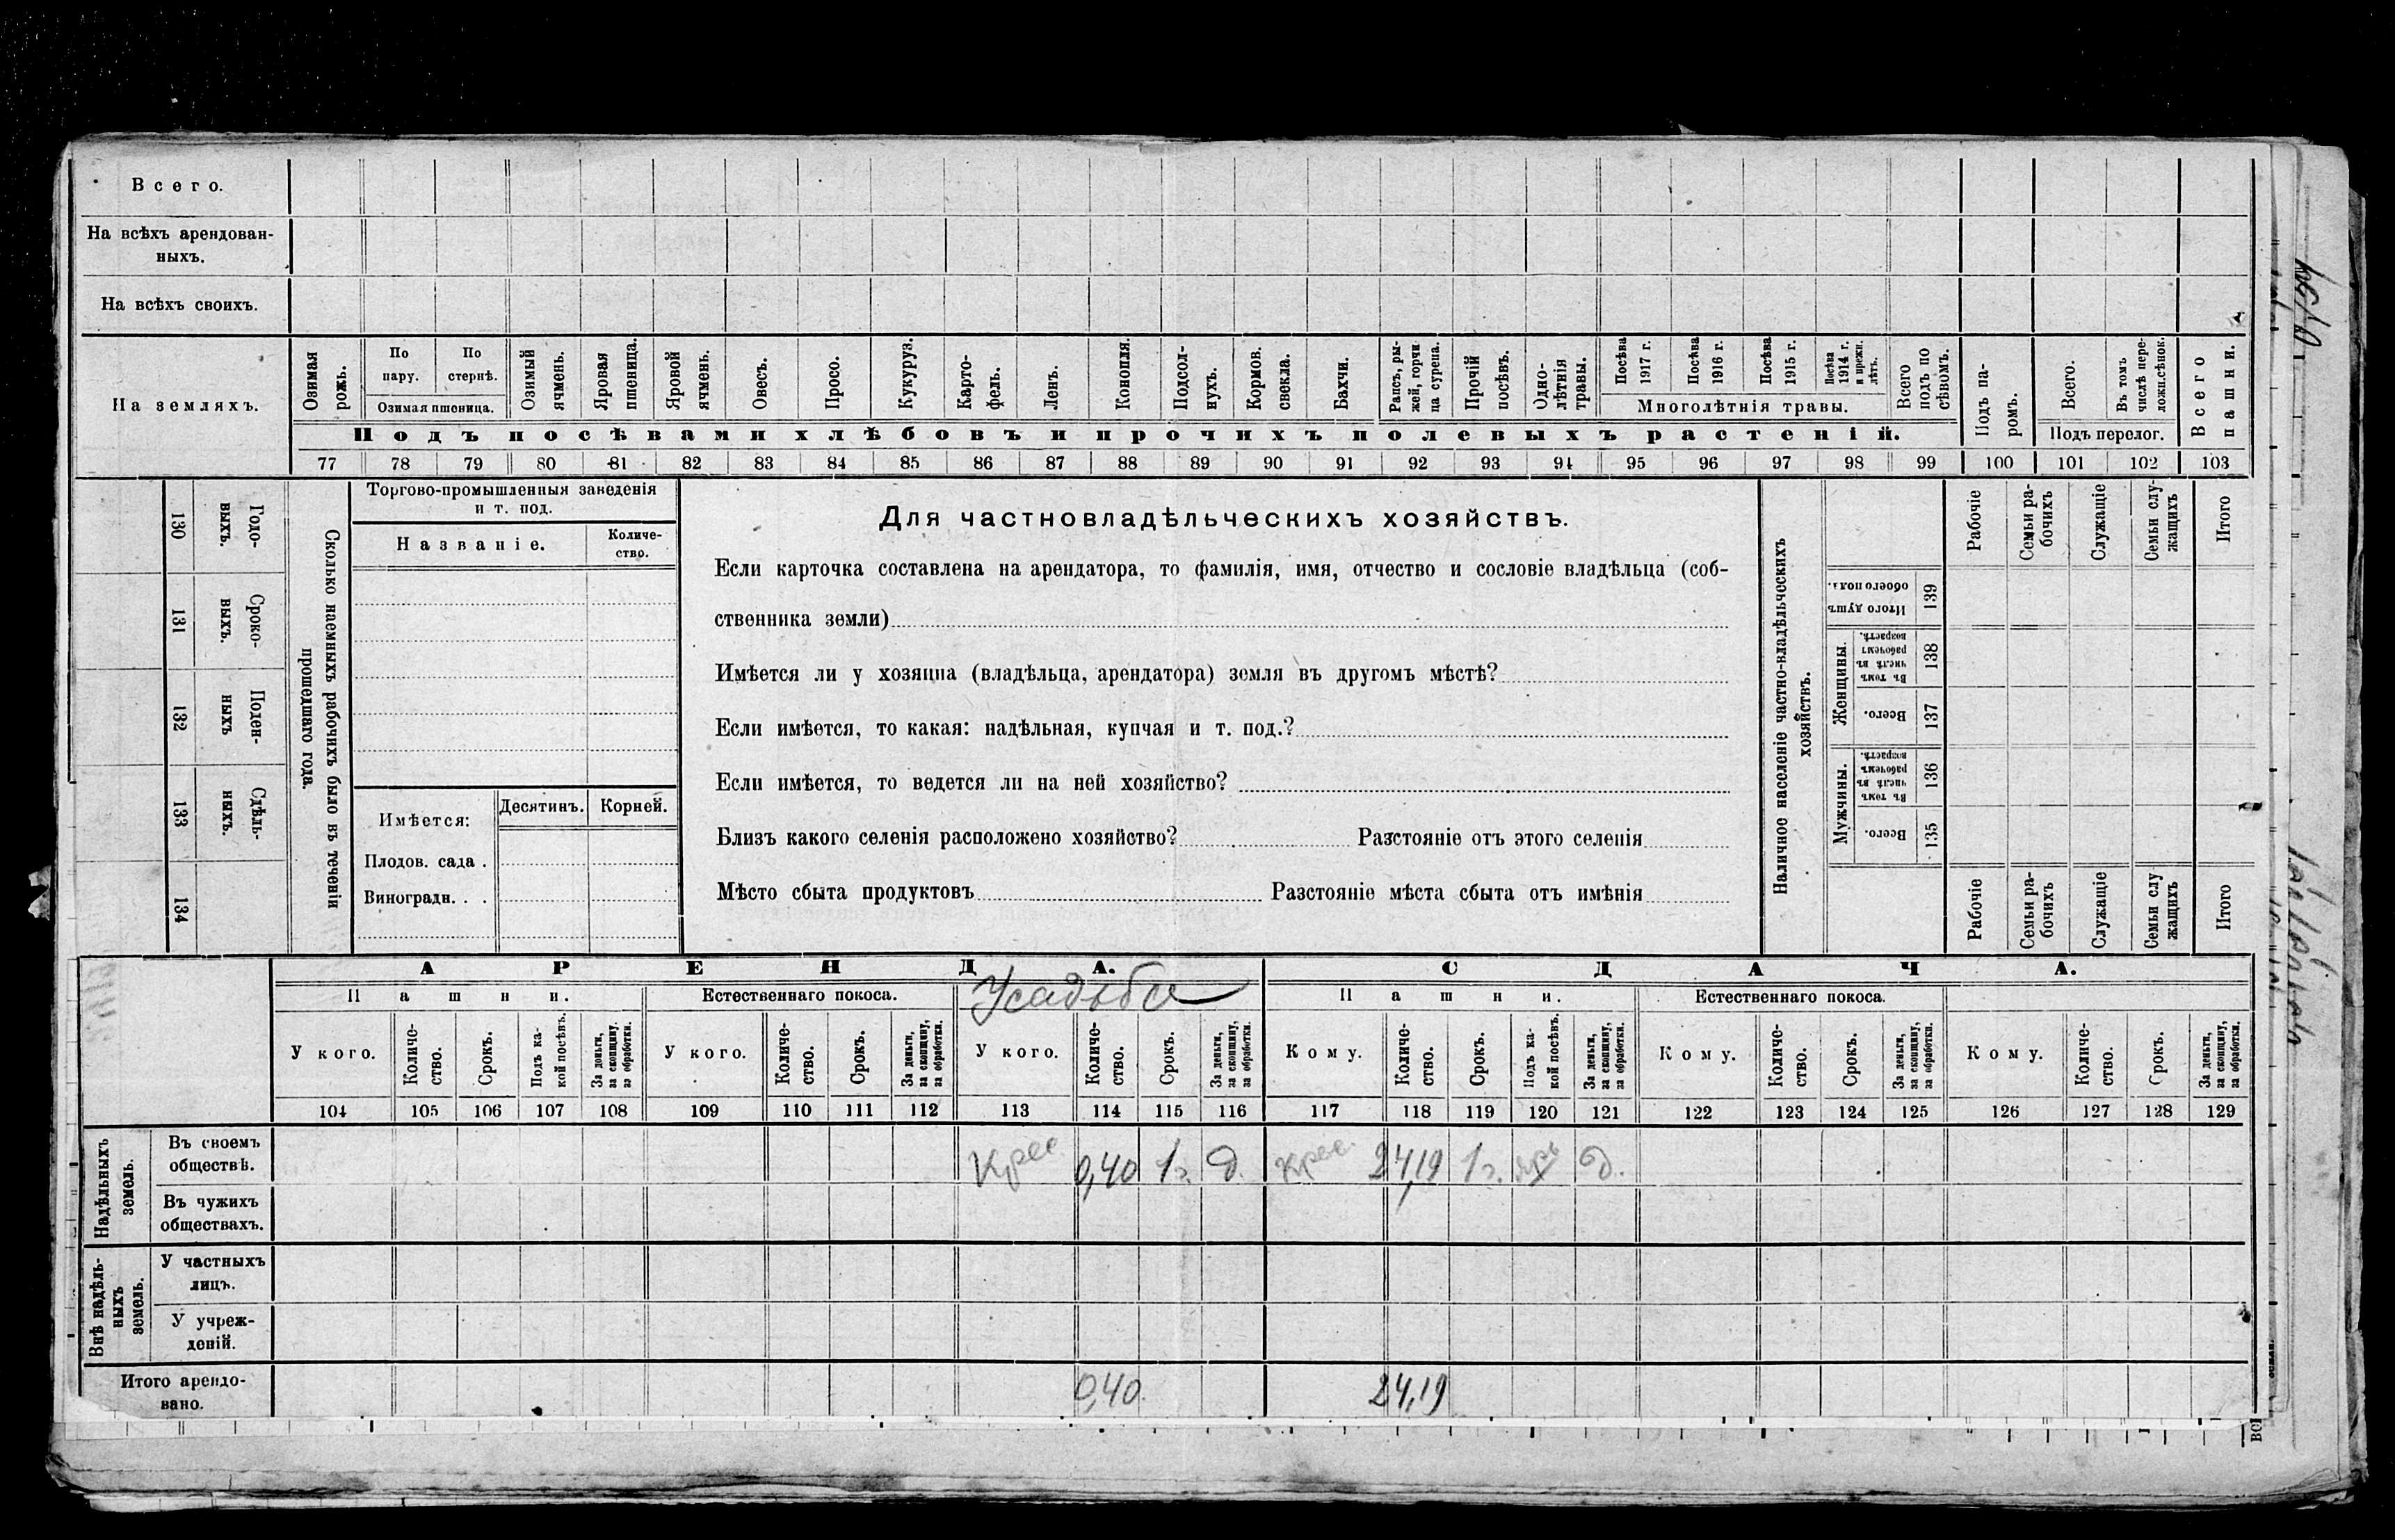 Всего.
На всѣхъ арендован-
ныхъ.
На всѣхъ своихъ.
На земляхъ.
Озимая рожь.
По пару.
По стернѣ.
Озимая пшеница.
Озимый ячмень.
Яровая пшеница.
Яровой ячмень.
Овесъ.
Просо.
Кукуруз.
Карто-
фель.
Ленъ.
Конопля.
Подсол-
нухъ.
Кормов. свекла.
Бахчи.
Рапсъ, ры-
жей, горчи
ца сурепа.
Прочій посѣвъ.
Одно-
лѣтнія
травы.
Посѣва 1917 г.
Посѣва 1916 г.
Посѣва 1915 г.
Посѣва 1914 г. и прежн. лѣтъ.
Многолѣтнія травы.
Всего подъ по
сѣвомъ.
Подъ па-
ромъ.
Всего.
Въ томъ числѣ пере-
ложн.сѣнок.
Подъ перелог.
Всего пашни.
Подъ посѣвами хлѣбовъ и прочихъ полевыхъ растеній.
77 78 79 80 81 82 83 84 85 86 87 88 89 90 91 92 93 94 95 96 97 98 99 100 101 102 103
130 Годо-
выхъ.
131 Сроко-
выхъ.
132 Поден-
ныхъ
133 Сдѣль-
ныхъ.
134
Сколько наемныхъ рабочихъ было въ теченіи
прошедшаго года.
Торгово-промышленныя заведенія
и т. под.
Названіе.
Количе-
ство.
Имѣется:
Десятинъ.
Корней.
Плодов. сада .
Виноградн. . .
Для частновладѣльческихъ хозяйствъ.
Если карточка составлена на арендатора, то фамилія, имя, отчество и сословіе владѣльца (соб-
ственника земли)
Имѣется ли у хозяина (владѣльца, арендатора) земля въ другомъ мѣстѣ?
Если имѣется, то какая: надѣльная, купчая и т. под.?
Если имѣется, то ведется ли на ней хозяйство?
Близъ какого селенія расположено хозяйство? Разстояніе отъ этого селенія
Мѣсто сбыта продуктовъ Разстояніе мѣста сбыта отъ имѣнія
Наличное населеніе частно-владѣльческихъ
хозяйствъ.
Рабочіе
Семьи ра-
бочихъ
Служащіе
Семьи слу-
жащихъ
Итого
Итого душъ обоего пола. 139
Женщины.
Въ томъ числѣ въ рабочемъ возрастѣ. 138
Всего. 137
Мужчины.
Въ томъ числѣ въ рабочемъ возрастѣ. 136
Всего. 135
Рабочіе
Семьи ра-
бочихъ
Служащіе
Семьи слу
жащихъ
Итого
АРЕНДА.
СДАЧА.
Пашни.
Естественнаго покоса.
Усадьба
Пашни.
Естественнаго покоса.
У кого.
Количе-
ство.
Срокъ.
Подъ ка-
кой посѣвъ.
За деньги,
за скопщину,
за обработки.
У кого.
Количе-
ство.
Срокъ.
За деньги,
за скопщину,
за обработки.
У кого.
Количе-
ство.
Срокъ.
За деньги,
за скопщину,
за обработки.
Кому.
Количе-
ство.
Срокъ.
Подъ ка-
кой посѣвъ.
За деньги,
за скопщину,
за обработки.
Кому.
Количе-
ство.
Срокъ.
За деньги,
за скопщину,
за обработки.
Кому.
Количе-
ство.
Срокъ.
За деньги,
за скопщину,
за обработки.
104 105 106 107 108 109 110 111 112 113 114 115 116 117 118 119 120 121 122 123 124 125 126 127 128 129
Надѣльныхъ
земель.
Въ своемъ
обществѣ.
Крес 0,40 1 г. д. Крес. 24,19 1 г. ярь д.
Въ чужихъ
обществахъ.
Внѣ надѣль-
ныхъ
земель.
У частныхъ
лицъ.
У учреж-
деній.
Итого арендо-
вано.
0,40. 24,19